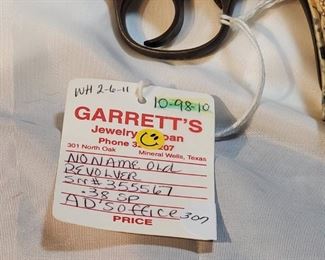 WH 2-6-11
10-98-10
GARRETT'S
Jewelry
Phone 207
301 North Oak Mineral Wells, Texas
NO NAME OLD
REVOLVER
Sn# 355567
.38 SP
AD'S Office 307
PRICE